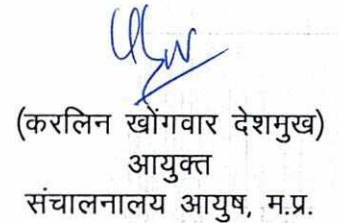 (करलिन खोंगवार देशमुख)
आयुक्त
संचालनालय आयुष, म.प्र.